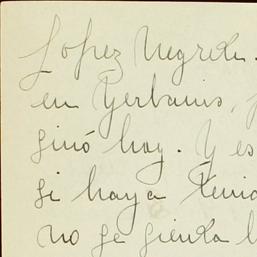 Lopez Negrete.
en Yerbanis,
ginó hoy. Y es
si haya tenid
no se sienta l